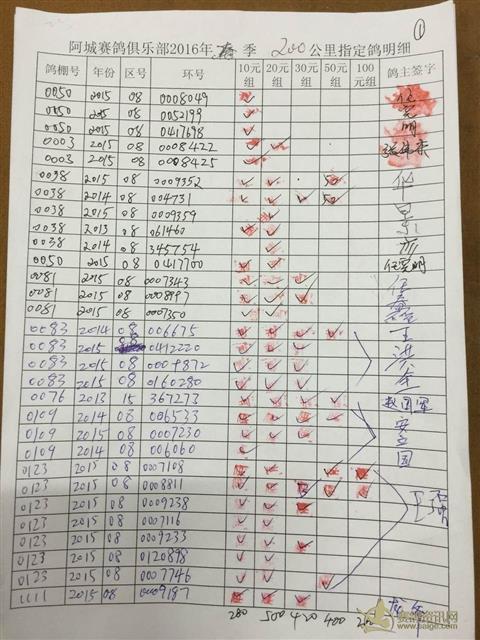 ①
阿城赛鸽俱乐部2016年 春 季 200公里指定鸽明细
鸽棚号 年份 区号 环号 10元组 20元组 30元组 50元组 100元组 鸽主签字
0050 2015 08 0008049 ✓ 任
0050 2015 08 0052199 ✓ 宪
0050 2015 08 0417698 ✓ 明
0003 2015 08 0008422 ✓ ✓
0003 2015 08 0008425 ✓
0038 2015 08 0009352 ✓ ✓ 50
0038 2014 08 004731 ✓ ✓ ✓ 50
0038 2015 08 0009359 ✓
0038 2013 08 061460 ✓ ✓
0038 2014 08 345754 ✓
0050 2015 08 0417700 ✓ ✓ 任宪明
0081 2015 08 0007343 ✓ ✓ ✓ 任
0081 2015 08 0008997 ✓ ✓ ✓
0081 2015 08 0007350 ✓ ✓
0083 2014 08 006675 ✓ ✓ ✓ ✓ 王
0083 2015 08 0412220 ✓ ✓ ✓ 洪
0083 2015 08 0009872 ✓ ✓ ✓
0083 2015 08 0160280 ✓ ✓ ✓
0076 2013 15 367273 ✓ ✓ ✓ 赵国军
0109 2014 08 006533 ✓ ✓ ✓ ✓
0109 2015 08 0007230 ✓ ✓ ✓ 立
0109 2014 08 006060 ✓ 国
0123 2015 08 0007108 ✓ ✓ ✓ ✓
0123 2015 08 0008811 ✓ ✓ ✓ ✓ ✓
0123 2015 08 0009238 ✓ ✓ ✓
0123 2015 08 0007116 ✓ ✓
0123 2015 08 0009233 ✓ ✓ ✓
0123 2015 08 0120898 ✓ ✓
0123 2015 08 0007746 ✓ ✓ ✓
1111 2015 08 0009187 ✓ ✓ ✓
280 500 420 400
赛鸽资讯网
www.saige.com